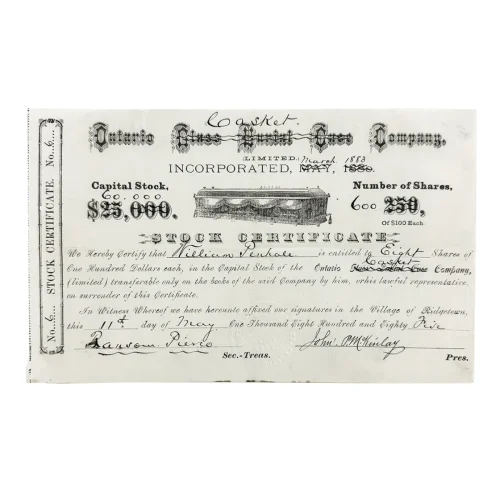 Casket.
Ontario Glass Burial Case Company,
(LIMITED.) March 1883
INCORPORATED, MAY, 1880.
Capital Stock, Number of Shares,
60.000 600
$25,000. 250,
Of $100 Each.
STOCK CERTIFICATE
We Hereby Certify that William Penhale is entitled to Eight Shares of
Casket
One Hundred Dollars each, in the Capital Stock of the Ontario Glass Burial Case Company,
(limited) transferable only on the books of the said Company by him, or his lawful representative,
on surrender of this Certificate.
In Witness Whereof we have hereunto affixed our signatures in the Village of Ridgetown,
this 11th day of May One Thousand Eight Hundred and Eighty Five
Ransom Pierso John P McKinlay
Sec.-Treas. Pres.
No. 6 STOCK CERTIFICATE. No. 6